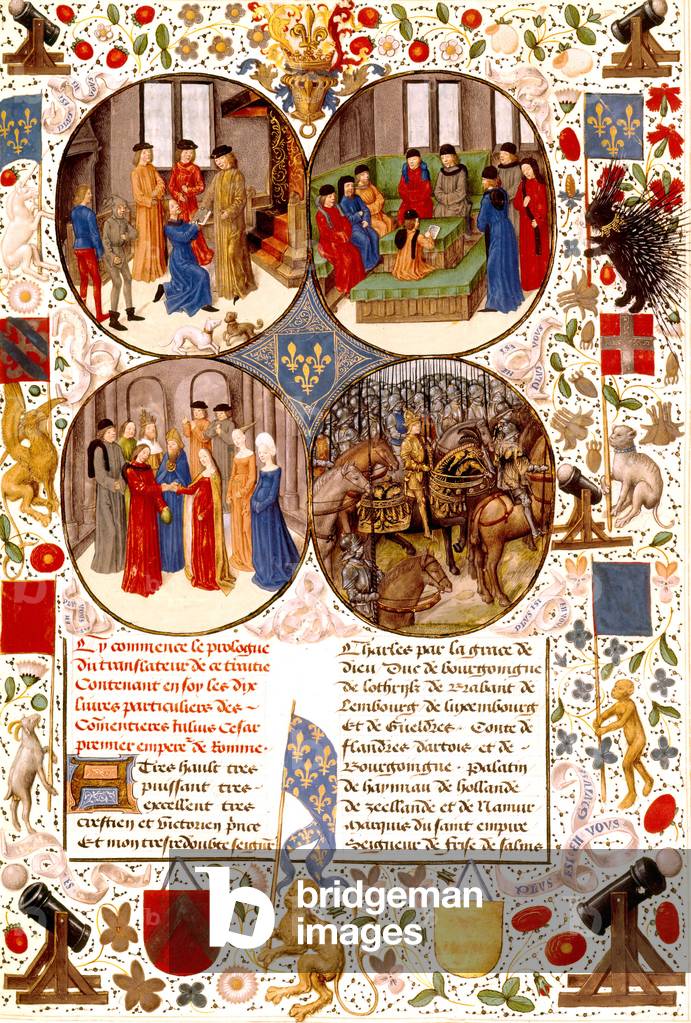 Cy commence le prologue
Du translateur de ce traitie
Contenant en soy les dix
liures particuliers des
Comentieres Iulius Cesar
premier empere^r de Romme.
A Tres hault tres
puissant tres
excellent tres
crestien et victorien prce
Et mon tresredoubte seignr
Charles par la grace de
dieu Duc de bourgoingne
de lothryk de Brabant de
Lembourg de luxembourg
Et de Gueldres. Conte de
flandres dartois et de
Bourgoingne. Palatin
de haynnau de hollande
de zeellande et de Namur
Marquis du saint empire
Seigneur de frise de salins
VOUS
b bridgeman
images